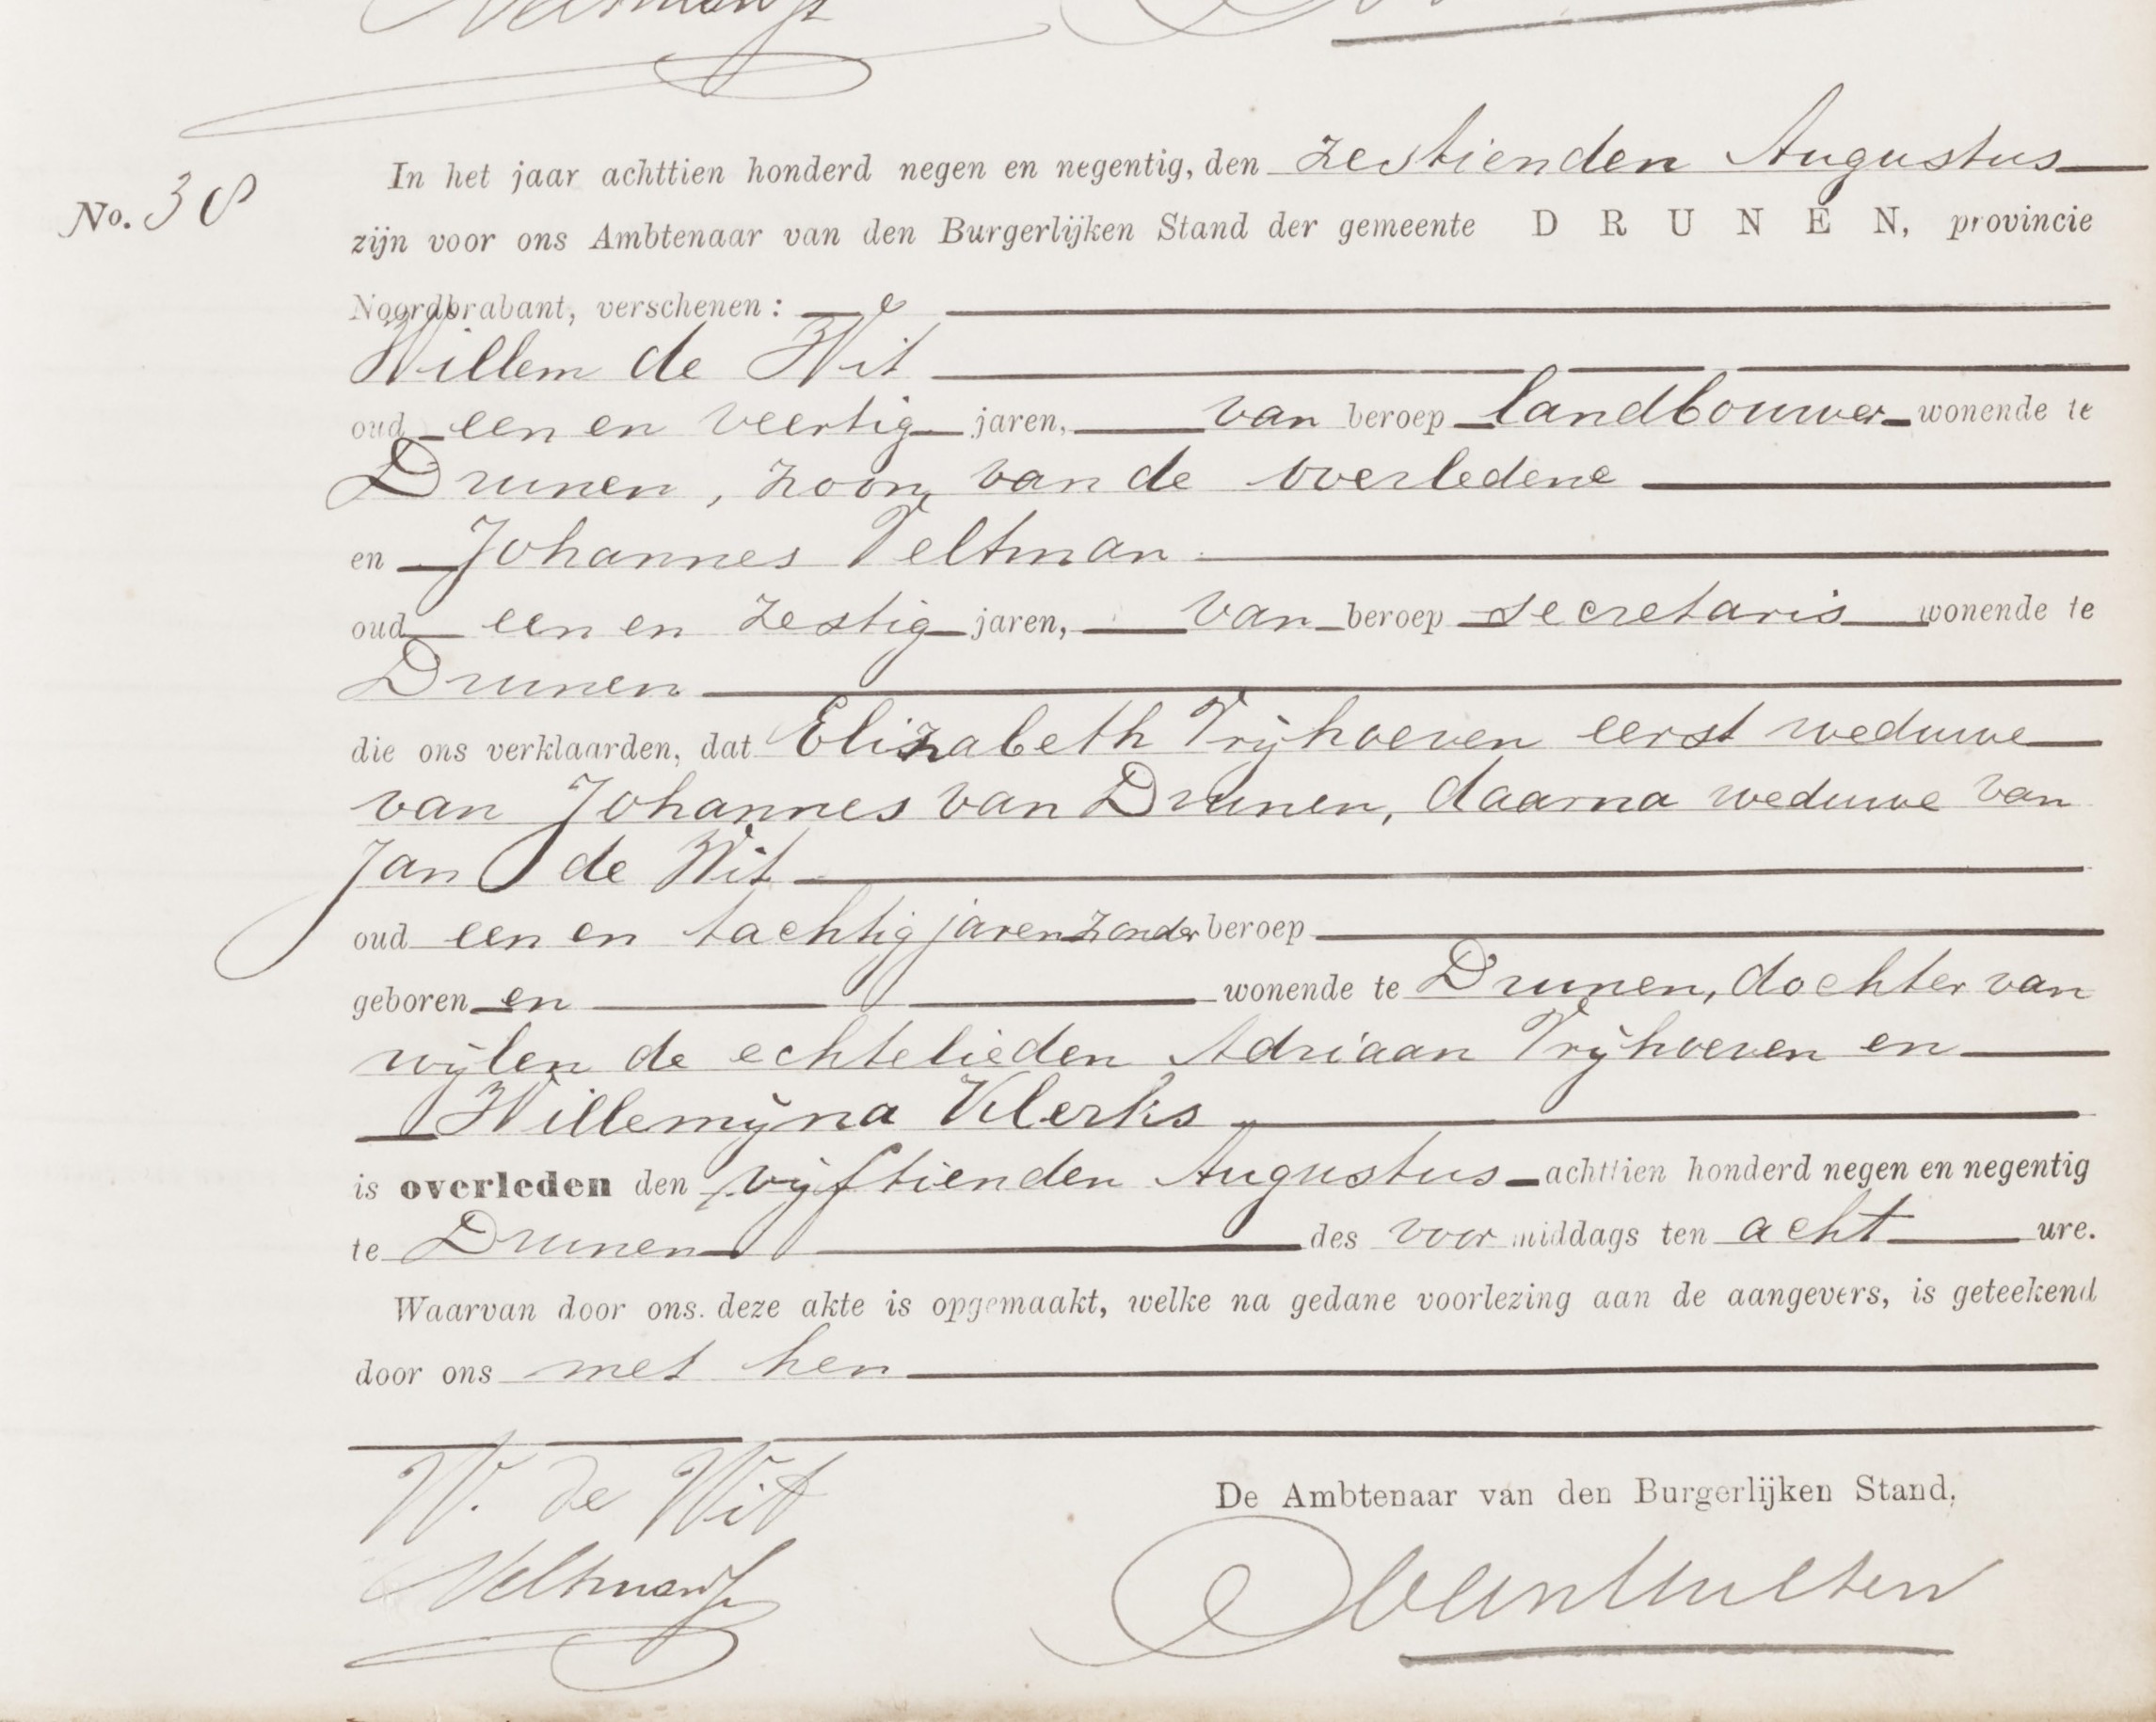 In het jaar achttien honderd negen en negentig, den zestienden Augustus
No. 38
zijn voor ons Ambtenaar van den Burgerlijken Stand der gemeente DRUNEN, provincie
Noordbrabant, verschenen:
Willem de Wit
oud een en veertig jaren, van beroep landbouwer wonende te
Drunen, zoon van de overledene
en Johannes Veltman
oud een en zestig jaren, van beroep secretaris wonende te
Drunen
die ons verklaarden, dat Elizabeth Vrijhoeven eerst weduwe
van Johannes van Drunen, daarna weduwe van
Jan de Wit
oud een en tachtig jaren zonder beroep
geboren en wonende te Drunen, dochter van
wijlen de echtelieden Adriaan Vrijhoeven en
Willemijna Klerks
is overleden den vijftienden Augustus achttien honderd negen en negentig
te Drunen des voor middags ten acht ure.
Waarvan door ons. deze akte is opgemaakt, welke na gedane voorlezing aan de aangevers, is geteekend
door ons met hen
W. de Wit
De Ambtenaar van den Burgerlijken Stand,
Veltman